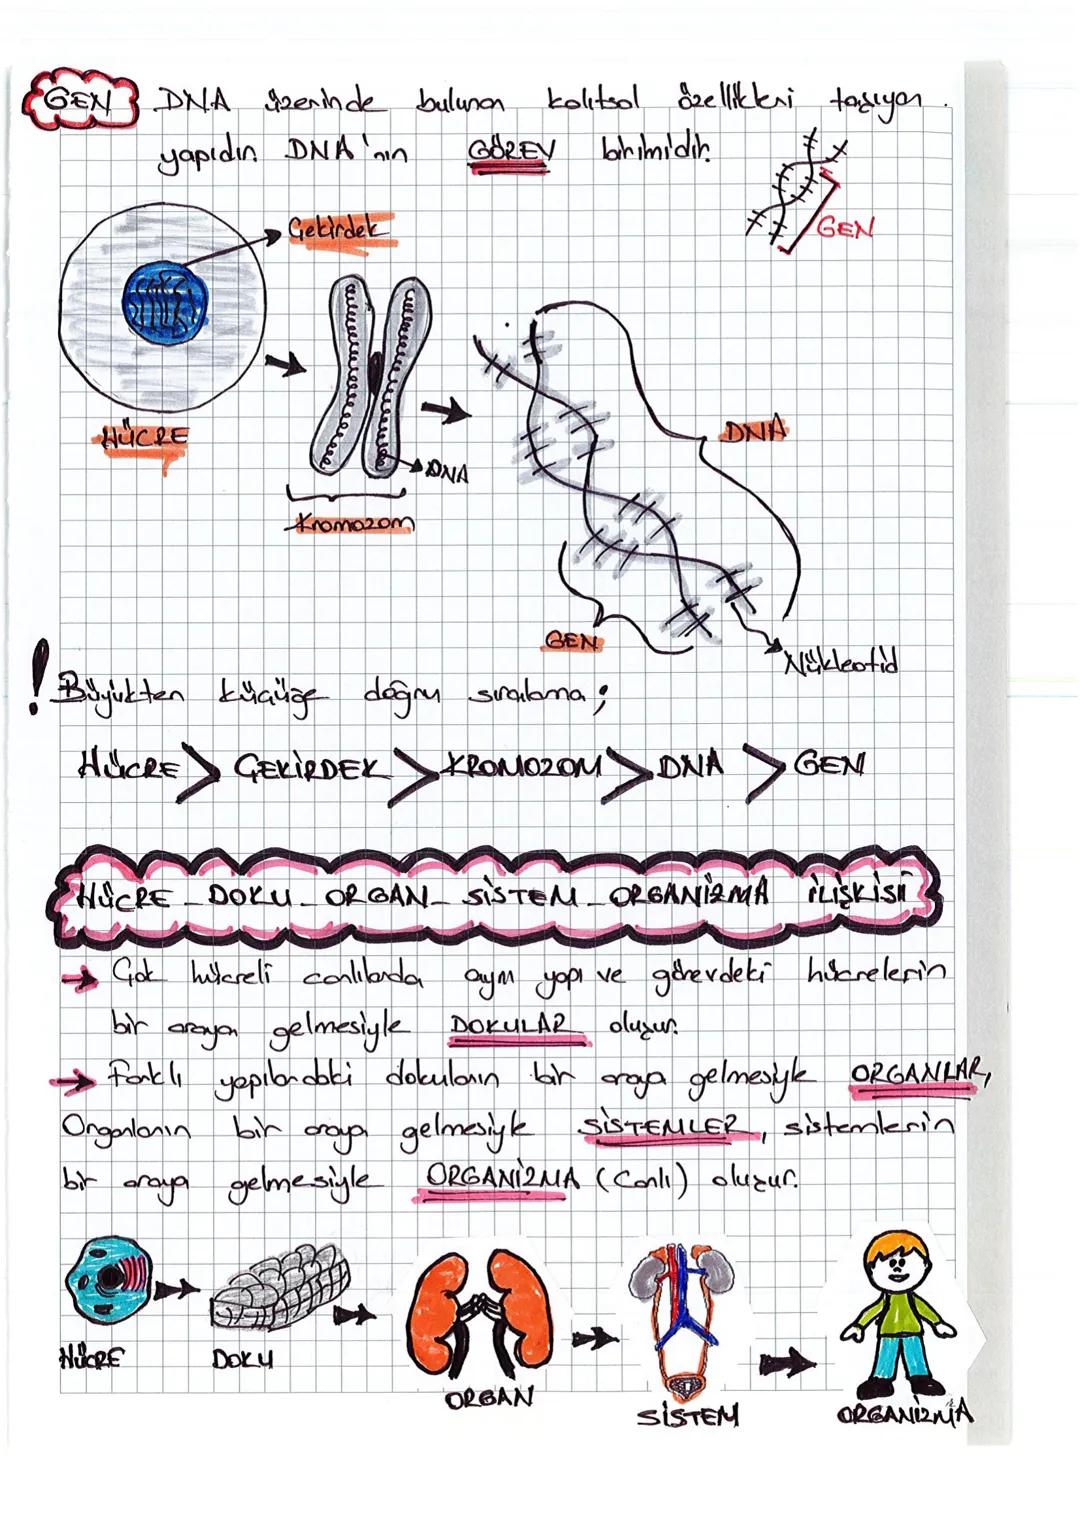 GEN DNA üzerinde bulunan kalıtsal özellikleri taşıyan
yapıdır. DNA'nın GÖREV birimidir.
GEN
Çekirdek
HÜCRE
DNA
Kromozom
DNA
GEN
Nükleotid
! Büyükten küçüğe doğru sıralama;
HÜCRE > ÇEKİRDEK > KROMOZOM > DNA > GEN
HÜCRE - DOKU - ORGAN - SİSTEM - ORGANİZMA İLİŞKİSİ
→ Çok hücreli canlılarda aynı yapı ve görevdeki hücrelerin
bir araya gelmesiyle DOKULAR oluşur.
→ Farklı yapılardaki dokuların bir araya gelmesiyle ORGANLAR,
Organların bir araya gelmesiyle SİSTEMLER, sistemlerin
bir araya gelmesiyle ORGANİZMA (Canlı) oluşur.
HÜCRE
DOKU
ORGAN
SİSTEM
ORGANİZMA